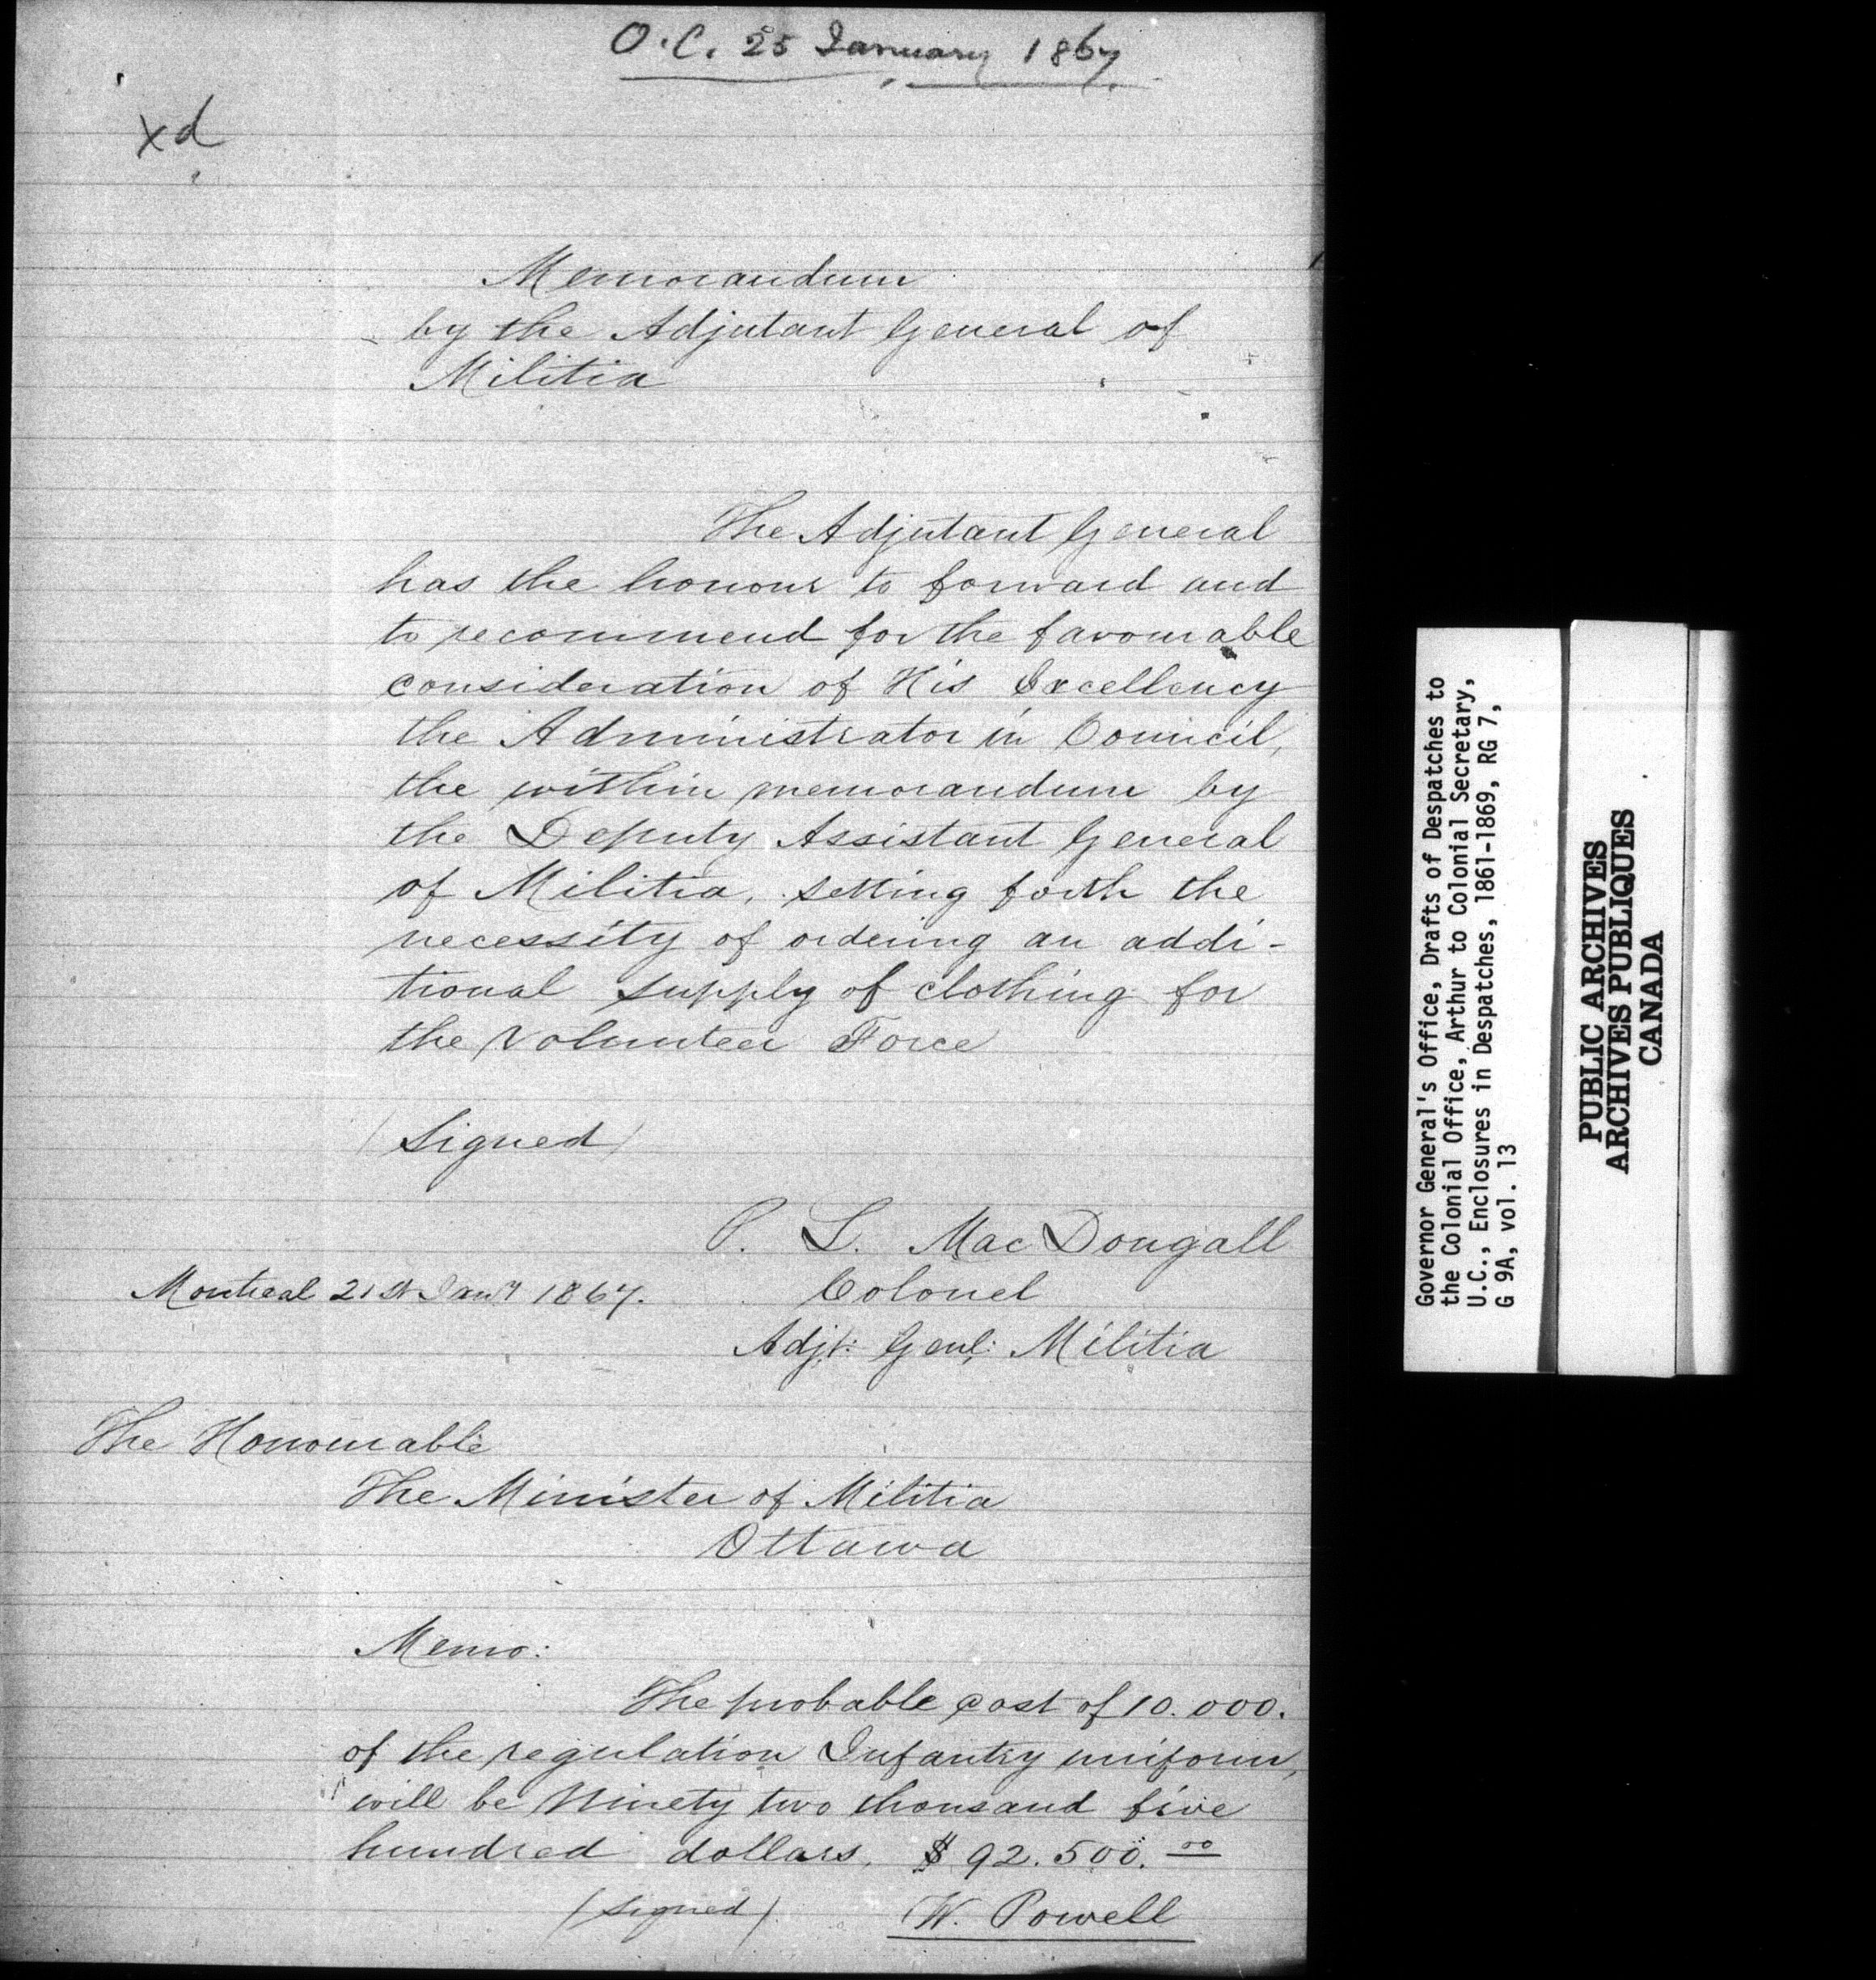 O.C. 25 January 1867
xd
Memorandum
by the Adjutant General of
Militia
The Adjutant General
has the honour to forward and
to recommend for the favourable
consideration of His Excellency
the Administrator in Council,
the within memorandum by
the Deputy Assistant General
of Militia, setting forth the
necessity of ordering an addi-
tional supply of clothing for
the Volunteer Force
(Signed)
P. L. MacDougall
Montreal 21st Jany 1867.
Colonel
Adjt: Genl: Militia
The Honourable
The Minister of Militia
Ottawa
Memo:
The probable cost of 10.000.
of the regulation Infantry uniform,
will be Ninety two thousand five
hundred dollars, $ 92.500. 00
(signed)
W. Powell
Governor General's Office, Drafts of Despatches to
the Colonial Office, Arthur to Colonial Secretary,
U.C., Enclosures in Despatches, 1861-1869, RG 7,
G 9A, vol. 13
PUBLIC ARCHIVES
ARCHIVES PUBLIQUES
CANADA